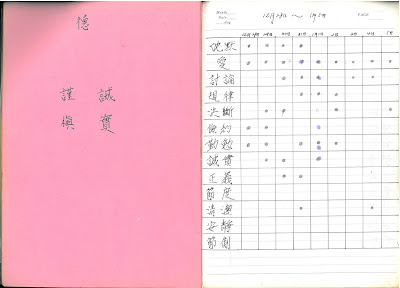 德
誠實
謹愼
12月28日 〜 1月5日
12月28日 29日 30日 31日 1月1日 2日 3日 4日 5日
沈默
愛
討論
規律
決斷
儉約
勤勉
誠實
正義
節度
清潔
安靜
節制